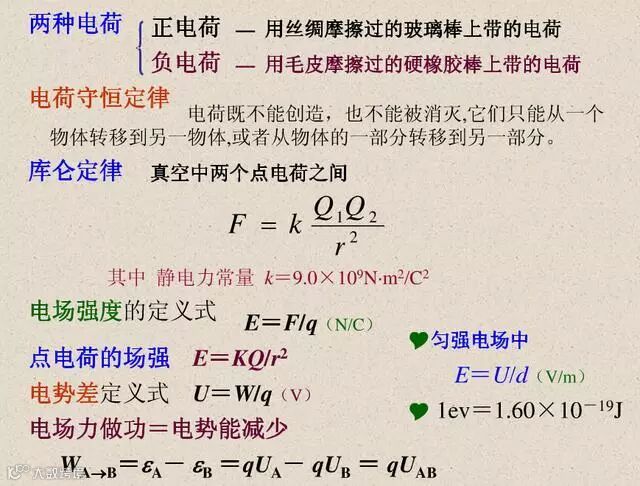 两种电荷 { 正电荷 — 用丝绸摩擦过的玻璃棒上带的电荷
负电荷 — 用毛皮摩擦过的硬橡胶棒上带的电荷
电荷守恒定律 电荷既不能创造，也不能被消灭,它们只能从一个
物体转移到另一物体,或者从物体的一部分转移到另一部分。
库仑定律 真空中两个点电荷之间
F = k Q₁Q₂ / r²
其中 静电力常量 k=9.0×10⁹N·m²/C²
电场强度的定义式 E=F/q (N/C)
点电荷的场强 E=KQ/r²
电势差定义式 U=W/q (V)
电场力做功=电势能减少
W_A→B=ε_A− ε_B=qU_A− qU_B = qU_AB
♥匀强电场中
E=U/d (V/m)
♥ 1ev=1.60×10⁻¹⁹J
大数跨境